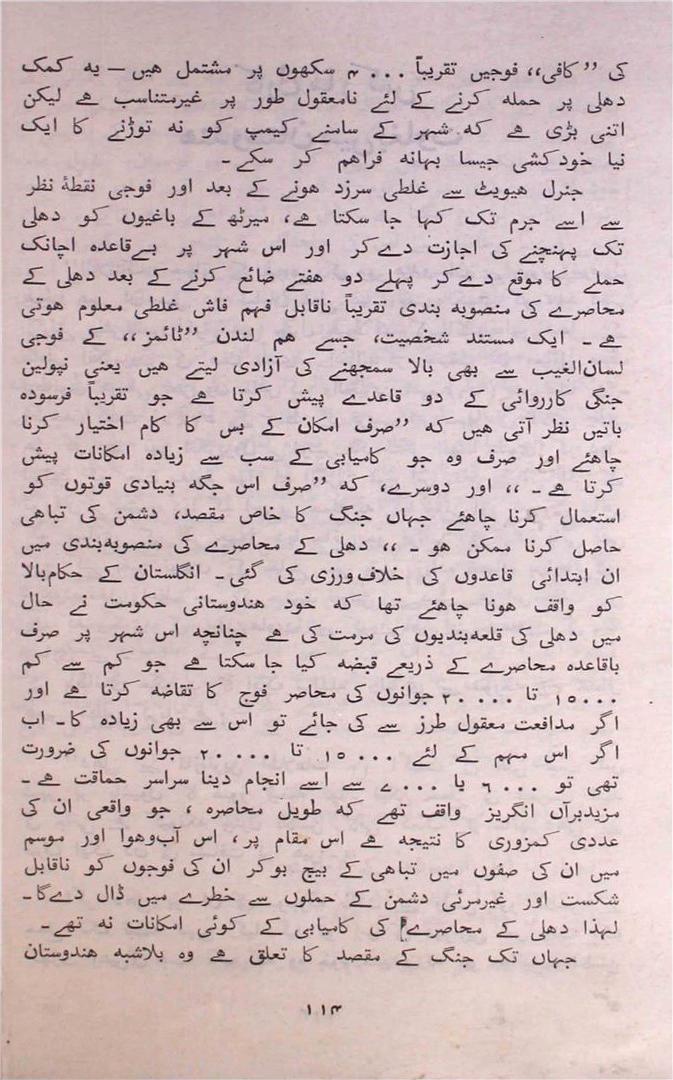 کی ’’کافی،، فوجیں تقریباً ۴۰۰۰ سکھوں پر مشتمل ھیں – یہ کمک
دھلی پر حملہ کرنے کے لئے نامعقول طور پر غیرمتناسب ھے لیکن
اتنی بڑی ھے کہ شہر کے سامنے کیمپ کو نہ توڑنے کا ایک
نیا خودکشی جیسا بہانہ فراھم کر سکے ـ
جنرل ھیویٹ سے غلطی سرزد ھونے کے بعد اور فوجی نقطۂ نظر
سے اسے جرم تک کہا جا سکتا ھے، میرٹھ کے باغیوں کو دھلی
تک پہنچنے کی اجازت دے کر اور اس شہر پر بےقاعدہ اچانک
حملے کا موقع دے کر پہلے دو ھفتے ضائع کرنے کے بعد دھلی کے
محاصرے کی منصوبہ بندی تقریباً ناقابل فہم فاش غلطی معلوم ھوتی
ھے ـ ایک مستند شخصیت، جسے ھم لندن ’’ٹائمز،، کے فوجی
لسان‌الغیب سے بھی بالا سمجھنے کی آزادی لیتے ھیں یعنی نپولین
جنگی کارروائی کے دو قاعدے پیش کرتا ھے جو تقریباً فرسودہ
باتیں نظر آتی ھیں کہ ’’صرف امکان کے بس کا کام اختیار کرنا
چاھئے اور صرف وہ جو کامیابی کے سب سے زیادہ امکانات پیش
کرتا ھے ـ ،، اور دوسرے، کہ ’’صرف اس جگہ بنیادی قوتوں کو
استعمال کرنا چاھئے جہاں جنگ کا خاص مقصد، دشمن کی تباھی
حاصل کرنا ممکن ھو ـ ،، دھلی کے محاصرے کی منصوبہ‌بندی میں
ان ابتدائی قاعدوں کی خلاف‌ورزی کی گئی ـ انگلستان کے حکام‌بالا
کو واقف ھونا چاھئے تھا کہ خود ھندوستانی حکومت نے حال
میں دھلی کی قلعہ‌بندیوں کی مرمت کی ھے چنانچہ اس شہر پر صرف
باقاعدہ محاصرے کے ذریعے قبضہ کیا جا سکتا ھے جو کم سے کم
۱۵۰۰۰ تا ۲۰۰۰۰ جوانوں کی محاصر فوج کا تقاضہ کرتا ھے اور
اگر مدافعت معقول طرز سے کی جائے تو اس سے بھی زیادہ کا ـ اب
اگر اس مہم کے لئے ۱۵۰۰۰ تا ۲۰۰۰۰ جوانوں کی ضرورت
تھی تو ۶۰۰۰ یا ۷۰۰۰ سے اسے انجام دینا سراسر حماقت ھے ـ
مزیدبرآں انگریز واقف تھے کہ طویل محاصرہ ، جو واقعی ان کی
عددی کمزوری کا نتیجہ ھے اس مقام پر، اس آب‌وھوا اور موسم
میں ان کی صفوں میں تباھی کے بیج بوکر ان کی فوجوں کو ناقابل
شکست اور غیرمرئی دشمن کے حملوں سے خطرے میں ڈال دےگا ـ
لہذا دھلی کے محاصرے کی کامیابی کے کوئی امکانات نہ تھے ـ
جہاں تک جنگ کے مقصد کا تعلق ھے وہ بلاشبہ ھندوستان
۱۱۴